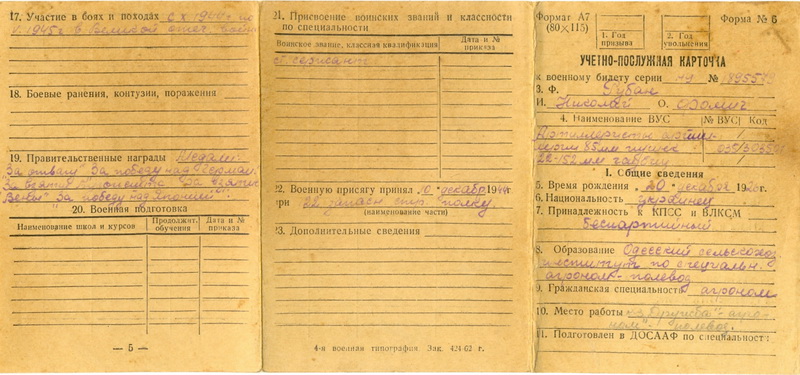 17. Участие в боях и походах с X 1944г. по
V. 1945г. в Великой отеч. войне
18. Боевые ранения, контузии, поражения
19. Правительственные награды Медали:
За отвагу" За победу над Герман.
За взятие "За взятие
Вены" За победу над Японией".
20. Военная подготовка
Наименование школ и курсов
Продолжит. обучения
Дата и № приказа
— 5 —
21. Присвоение воинских званий и классности
по специальности
Воинское звание, классная квалификация
Дата и № приказа
ст сержант
22. Военную присягу принял „10" декабр 1944г
при 22 запасн стр. полку.
(наименование части)
23. Дополнительные сведения
4-я военная типография Зак. 424-62 г.
Формат А7
(80×115)
1. Год призыва
2. Год увольнения
Форма № 6
УЧЕТНО-ПОСЛУЖНАЯ КАРТОЧКА
к военному билету серии НД №
3. Ф. Рубан
И. Николай О. Фомич
4. Наименование ВУС
№ ВУС
Код
Артиллеристы артил-
лерии 85мм пушек
122-152 мм гаубиц
I. Общие сведения
5. Время рождения „20" декабря 1926г.
6. Национальность украинец
7. Принадлежность к КПСС и ВЛКСМ
Беспартийный
8. Образование Одесский сельскохоз.
институт по специальн.
агроном-полевод
9. Гражданская специальность агроном
10. Место работы "Дружба"- агро-
ном - полевод.
11. Подготовлен в ДОСААФ по специальности